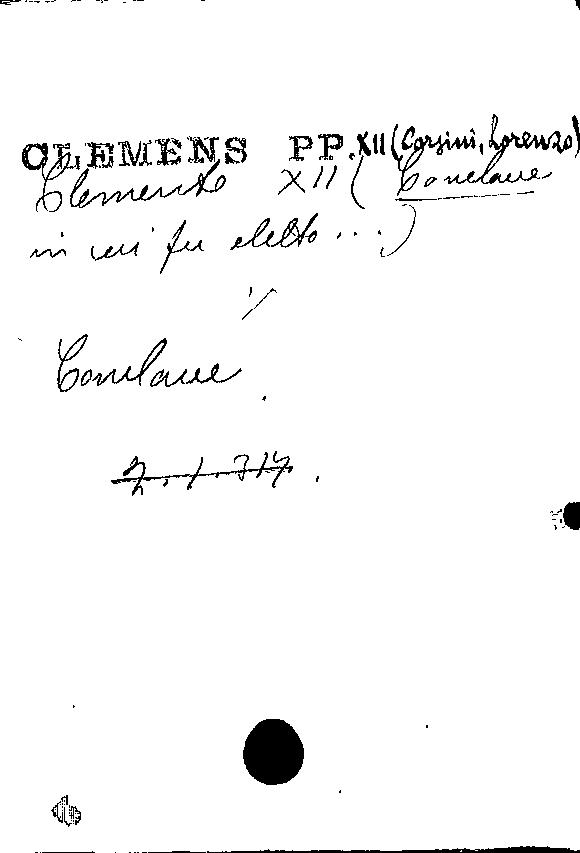 CLEMENS PP. XII (Corsini, Lorenzo)
Clemente XII (Conclave
in cui fu eletto ...)
v/
Conclave.
2.1.314.